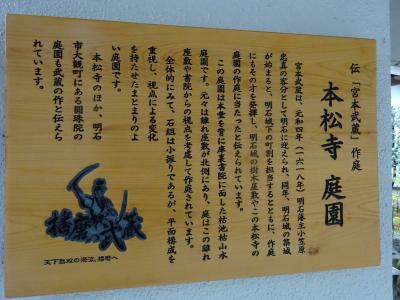 伝「宮本武蔵」作庭
本松寺 庭園
宮本武蔵は、元和四年（一六一八年）明石藩主小笠原
忠真の客分として明石に迎えられ、同年、明石城の築城
が始まると、明石城下の町割を担当するとともに、作庭
にもその才を発揮し、明石城の樹木屋敷やこの本松寺の
庭園の作庭に当たったと伝えられています。
この庭園は本堂を背に庫裏書院に面した枯池枯山水
庭園です。元々は離れ座敷が北側にあり、庭はこの離れ
座敷や書院からの視点を考慮して作庭されています。
全体的にみて、石組は小振りであるが、平面構成を
重視し、視点による変化
を持たせたまとまりのよ
い庭園です。
本松寺のほか、明石
市大観町にある圓珠院の
庭園も武蔵の作と伝えら
れています。
播磨武蔵
天下無双の源流、播磨へ